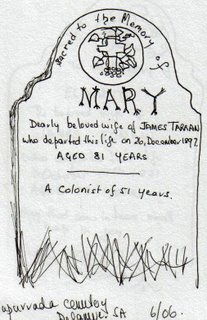 Sacred to the Memory of
MARY
Dearly beloved wife of JAMES TARRAN
who departed this life on 26, December 1897
AGED 81 YEARS
A Colonist of 51 years.
cemetery
SA 6/06.